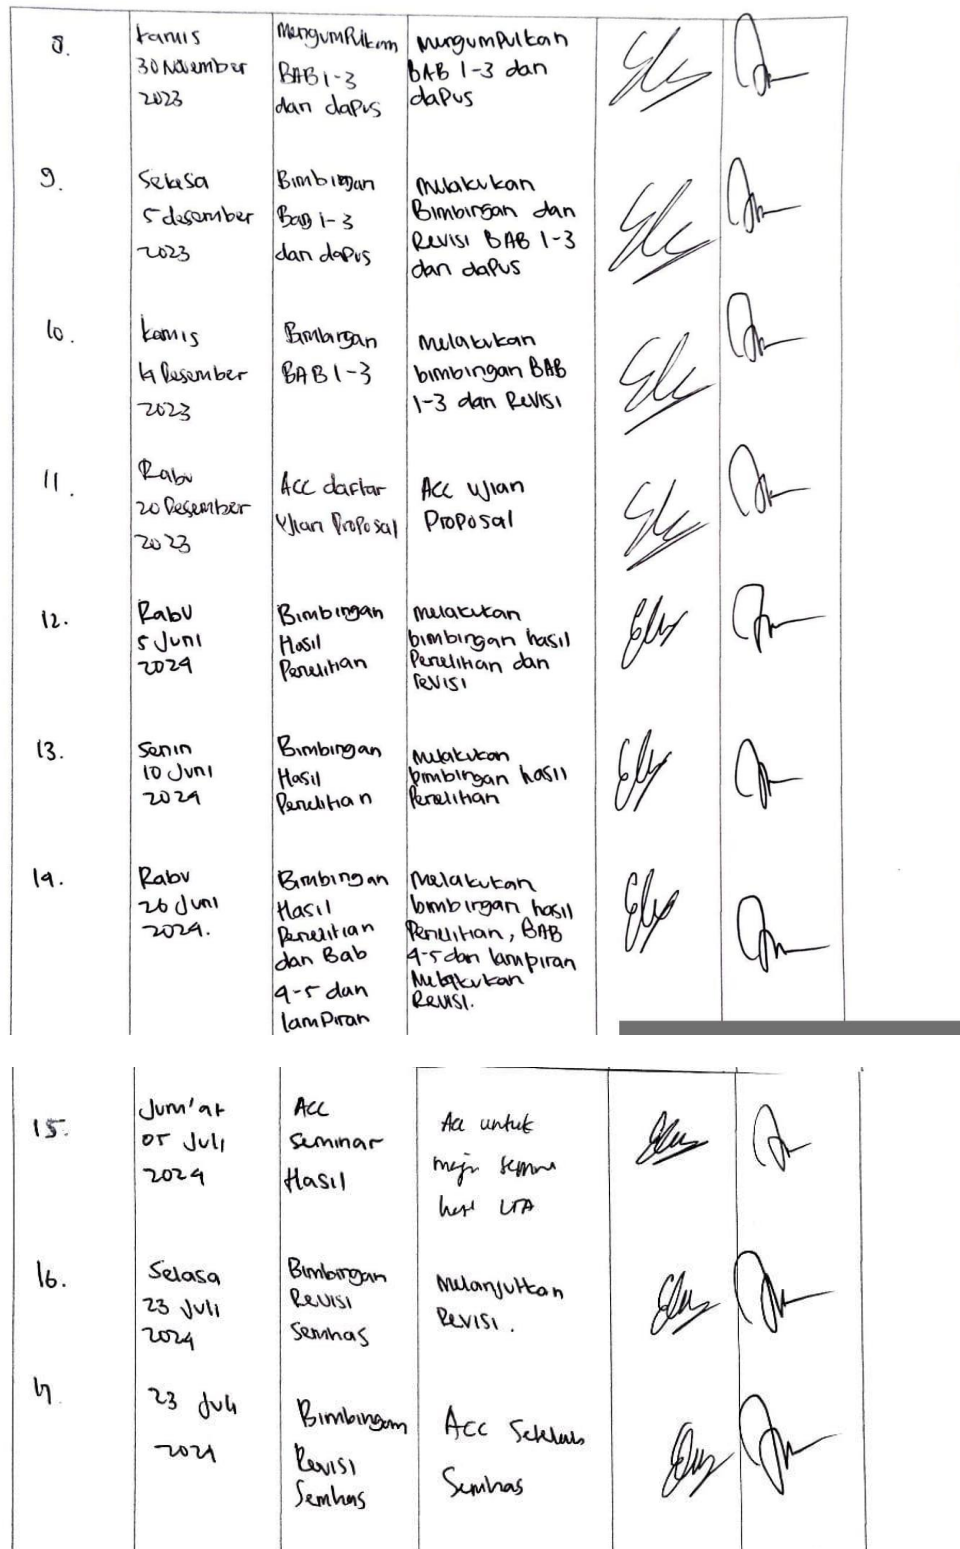 8.
Kamis
30 November
2023
Mengumpulkan
BAB 1-3
dan dapus
Mengumpulkan
BAB 1-3 dan
dapus
9.
Selasa
5 desember
2023
Bimbingan
Bab 1-3
dan dapus
Melakukan
Bimbingan dan
Revisi BAB 1-3
dan dapus
10.
Kamis
Desember
2023
Bimbingan
BAB 1-3
Melakukan
bimbingan BAB
1-3 dan Revisi
11.
Rabu
20 Desember
2023
Acc daftar
Ujian Proposal
Acc Ujian
Proposal
12.
Rabu
5 Juni
2024
Bimbingan
Hasil
Penelitian
Melakukan
bimbingan hasil
Penelitian dan
revisi
13.
Senin
10 Juni
2024
Bimbingan
Hasil
Penelitian
Melakukan
bimbingan hasil
Penelitian
14.
Rabu
26 Juni
2024.
Bimbingan
Hasil
Penelitian
dan Bab
4-5 dan
lampiran
Melakukan
bimbingan hasil
Penelitian, BAB
4-5 dan lampiran
Melakukan
Revisi.
15.
Jum'at
05 Juli
2024
Acc
Seminar
Hasil
Acc untuk
LTA
16.
Selasa
23 Juli
2024
Bimbingan
Revisi
Semhas
Melanjutkan
Revisi.
17.
23 Juli
2024
Bimbingan
Revisi
Semhas
Acc Setelah
Semhas